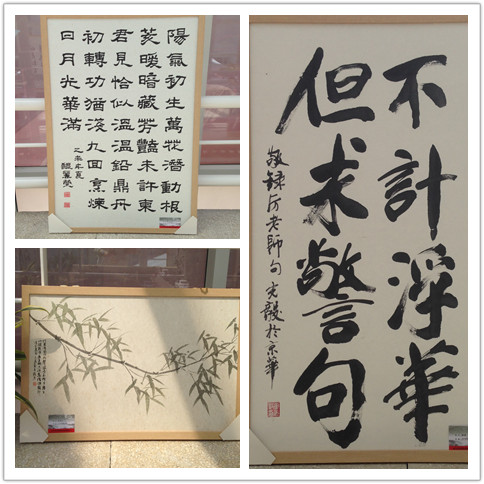 陽氣初生萬花潛動根
荄暖暗藏芳豔未許東
君見恰似溫溫鉛鼎丹
初轉功猶淺九回烹煉
日月光華滿
乙未年夏
不計浮華
但求警句
敬録厉老師句
於京華